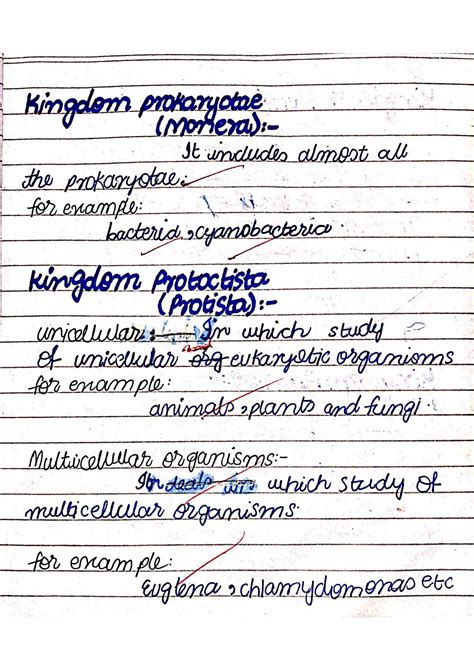 Kingdom prokaryotae
(Monera):-
It includes almost all
the prokaryotae.
for example:
bacteria, cyanobacteria.
Kingdom Protoctista
(Protista):-
unicellular:- In which study
of unicellular org eukaryotic organisms
for example:
animals, plants and fungi.
Multicellular organisms:-
In deals which study of
multicellular organisms.
for example:
Euglena, chlamydomonas etc